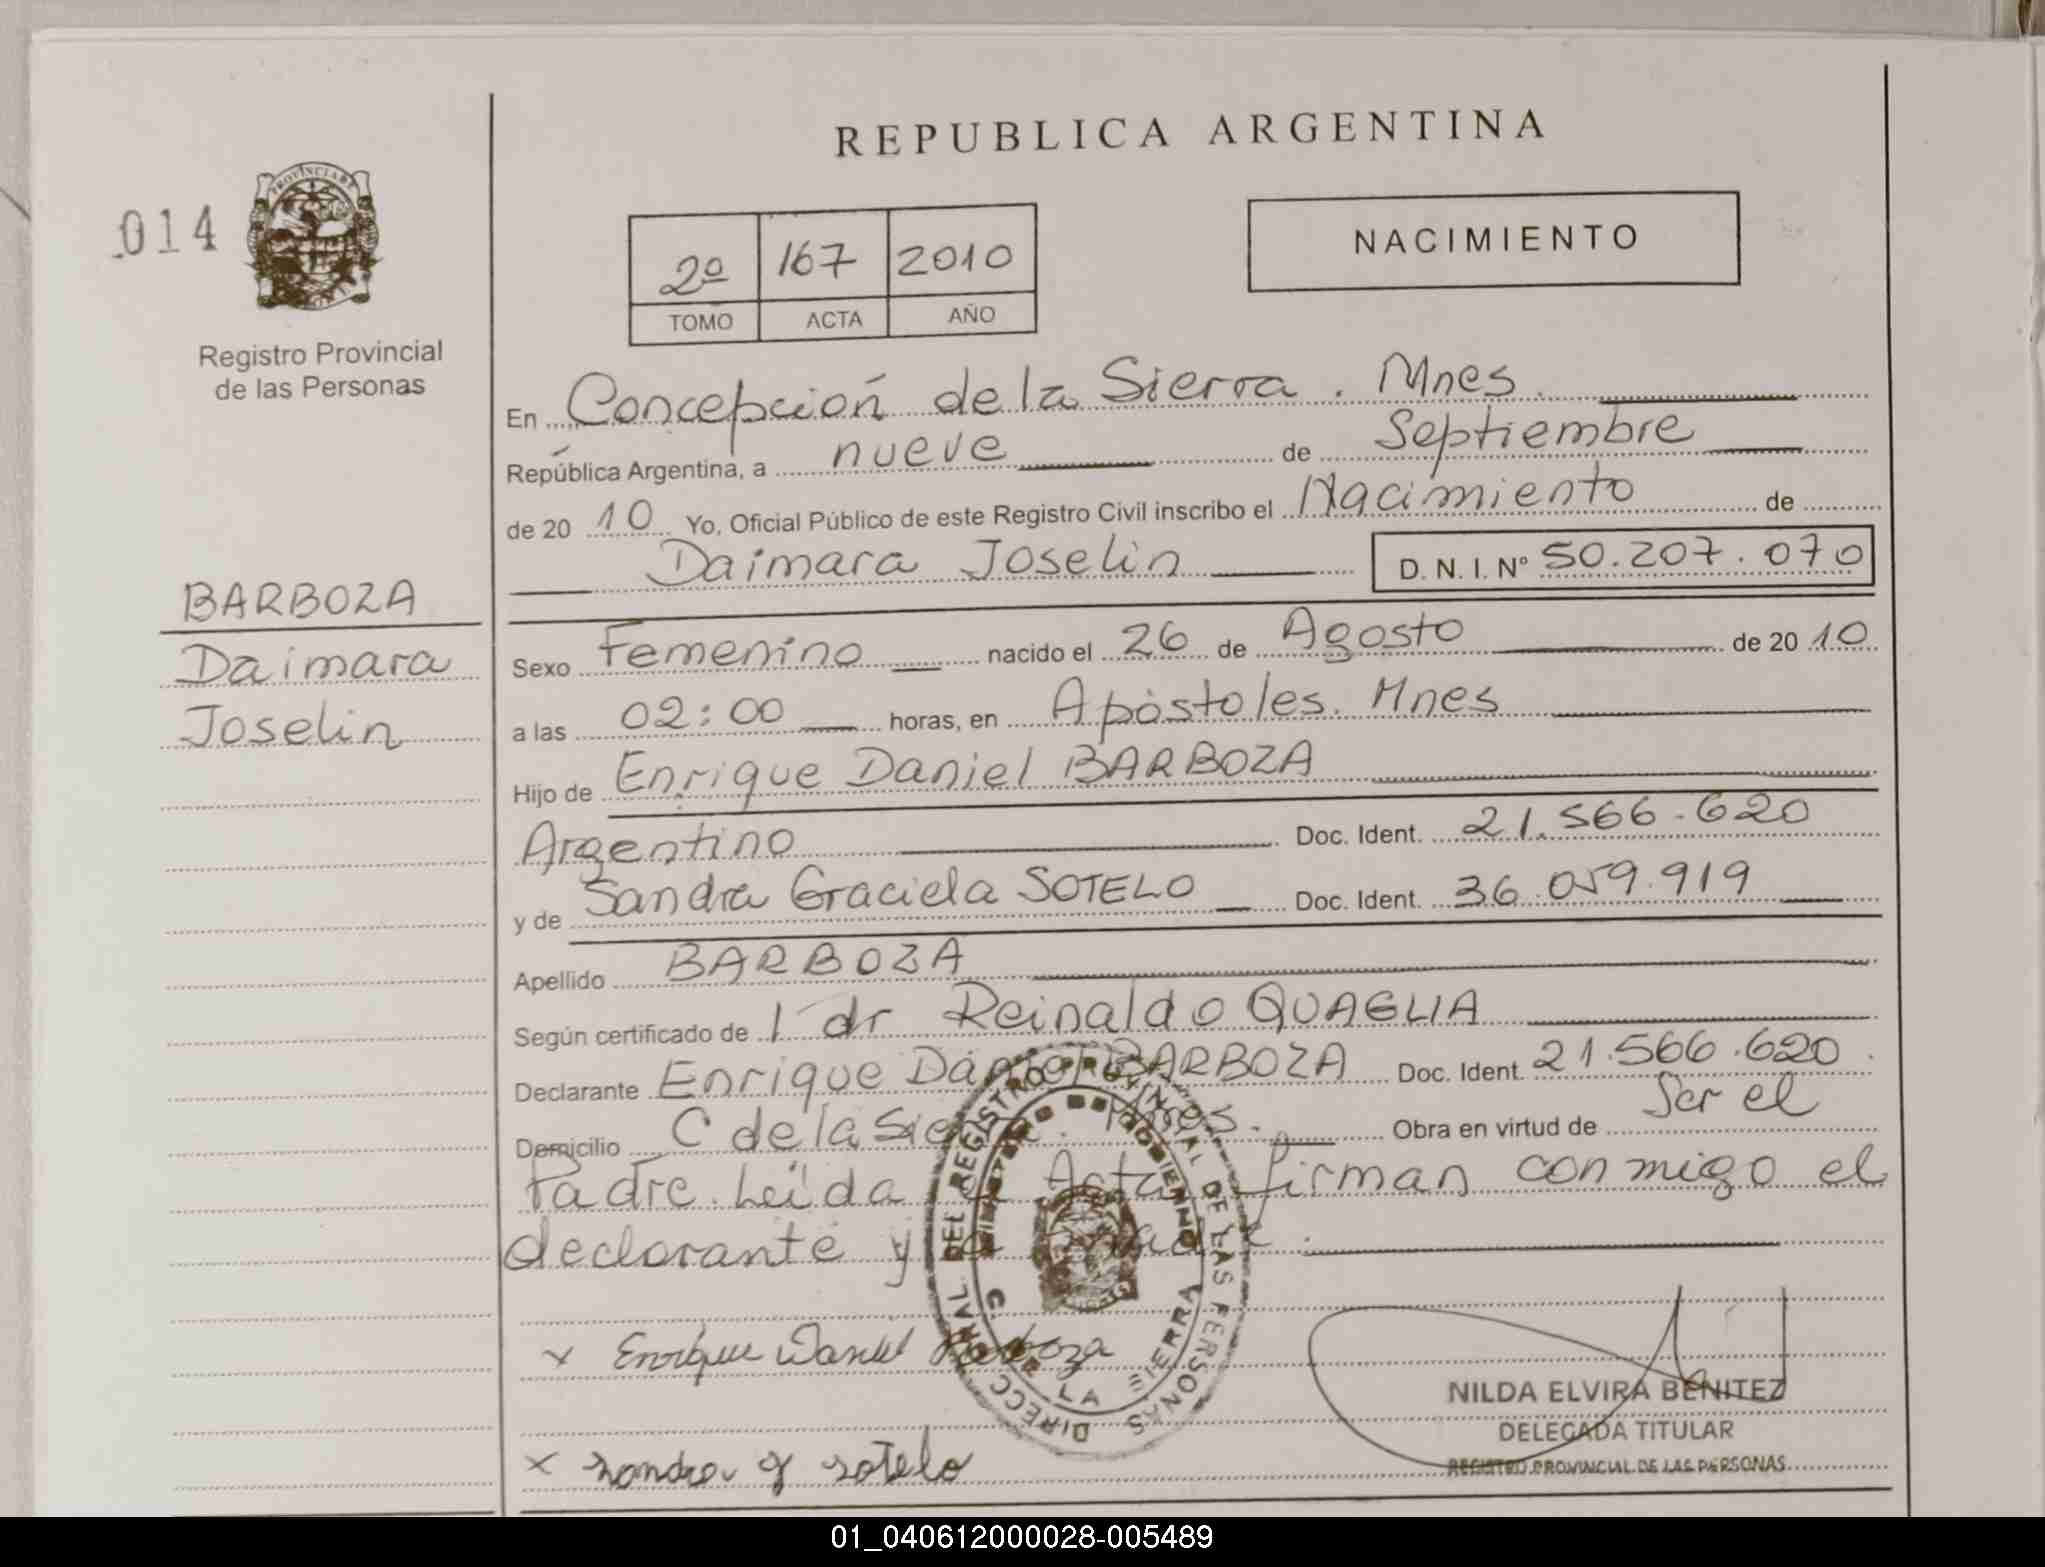 REPUBLICA ARGENTINA
014
PROVINCIA DE
Registro Provincial
de las Personas
2º 167 2010
TOMO ACTA AÑO
NACIMIENTO
BARBOZA
Daimara
Joselin
En Concepción de la Sierra. Mnes.
República Argentina, a nueve de Septiembre
de 2010 Yo, Oficial Público de este Registro Civil inscribo el Nacimiento de
Daimara Joselin D. N. I. Nº 50.207.070
Sexo Femenino nacido el 26 de Agosto de 2010
a las 02:00 horas, en Apóstoles. Mnes
Hijo de Enrique Daniel BARBOZA
Argentino Doc. Ident. 21.566.620
y de Sandra Graciela SOTELO Doc. Ident. 36.059.919
Apellido BARBOZA
Según certificado de l dr Reinaldo QUAGLIA
Declarante Enrique Daniel BARBOZA Doc. Ident. 21.566.620.
Domicilio C de la Sierra. Mnes. Obra en virtud de Ser el
Padre. Leida el Acta, firman conmigo el
declarante y la madre.
DIRECC RAL DEL REGISTRO PROVINCIAL DE LAS PERSONAS
C. DE LA SIERRA
x Enrique Daniel Barboza
x sandra g sotelo
NILDA ELVIRA BENITEZ
DELEGADA TITULAR
REGISTRO PROVINCIAL DE LAS PERSONAS
01_040612000028-005489